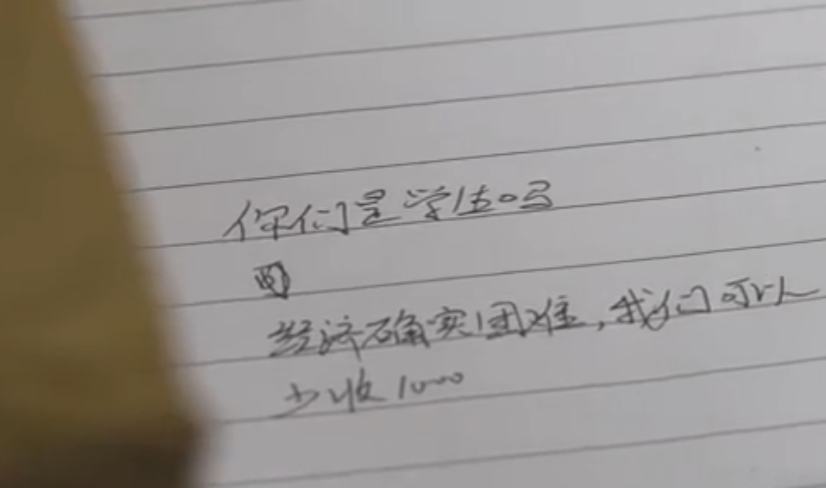 你们是学生吗
经济确实困难，我们可以
少收1000